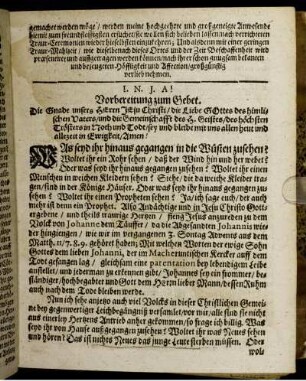 gemachet werden möge / werden meine hochgeehrte und großgeneigte Anwesende
hiermit zum freundfleissigsten ersuchet / sie wollen sich belieben lassen nach verrichteten
Traur-Ceremonien wieder hieselbsten einzukehren; Und alsdenn mit einer geringen
Traur-Mahlzeit / wie dieselbe nach dieses Ortes und der Zeit Beschaffenheit wird
præsentiret und auffgetragen werden können / nach ihrer schon gnugsam bekanten
und bezeugeten Höffligkeit und Affection / großgünstig
verlieb nehmen.
I. N. J. A!
Vorbereitung zum Gebet.
Die Gnade unsers Herren Jesu Christi / die Liebe GOttes des himlischen
Vaters / und die Gemeinschafft des H. Geistes / des höchsten
Trösters in Noth und Tode / sey und bleibe mit uns allen heut und
allezeit in Ewigkeit / Amen!
WAs seyd ihr hinaus gegangen in die Wüsten zu sehen?
Woltet ihr ein Rohr sehen / daß der Wind hin und her webet?
Oder was seyd ihr hinaus gegangen zu sehen? Woltet ihr einen
Menschen in weichen Kleidern sehen? Siehe / die da weiche Kleider tragen /
sind in der Könige Häuser. Oder was seyd ihr hinaus gegangen zu
sehen? Woltet ihr einen Propheten sehen? Ja / ich sage euch / der auch
mehr ist denn ein Prophet. Also Andächtige und in Jesu Christo Gotte
ergebene / und theils traurige Hertzen / fieng Jesus an zu reden zu dem
Volck von Johanne dem Täuffer / da die Abgesandten Johannis wieder
hingiengen / wie wir im vergangenen 3. Sontag Advents aus dem
Matth. 11/7.8.9. gehöret haben; Mit welchen Worten der ewige Sohn
Gottes dem lieben Johanni, der im Machæruntischen Kercker auff dem
Tode gefangen lag / gleichsam eine parentation bey lebendigem Leibe
anstellet / und jederman zu erkennen gibt / Johannes sey ein frommer / beständiger /
hochbegabter und Gott dem Herrn lieber Mann / dessen Ruhm
auch nach dem Tode bleiben werde.
Nun ich sehe anjetzo auch viel Volcks in dieser Christlichen Gemein
bey gegenwertiger Leichbegängniß versamlet / vor mir / alle sind sie nicht
aus einerley Hertzens Antrieb anher gekommen / so frage ich billig. Was
seyd ihr von Hause auß gegangen zu sehen? Woltet ihr was Neues sehen
und hören? Das ist nichts Neues das junge Leute sterben müssen. Oder
wol-